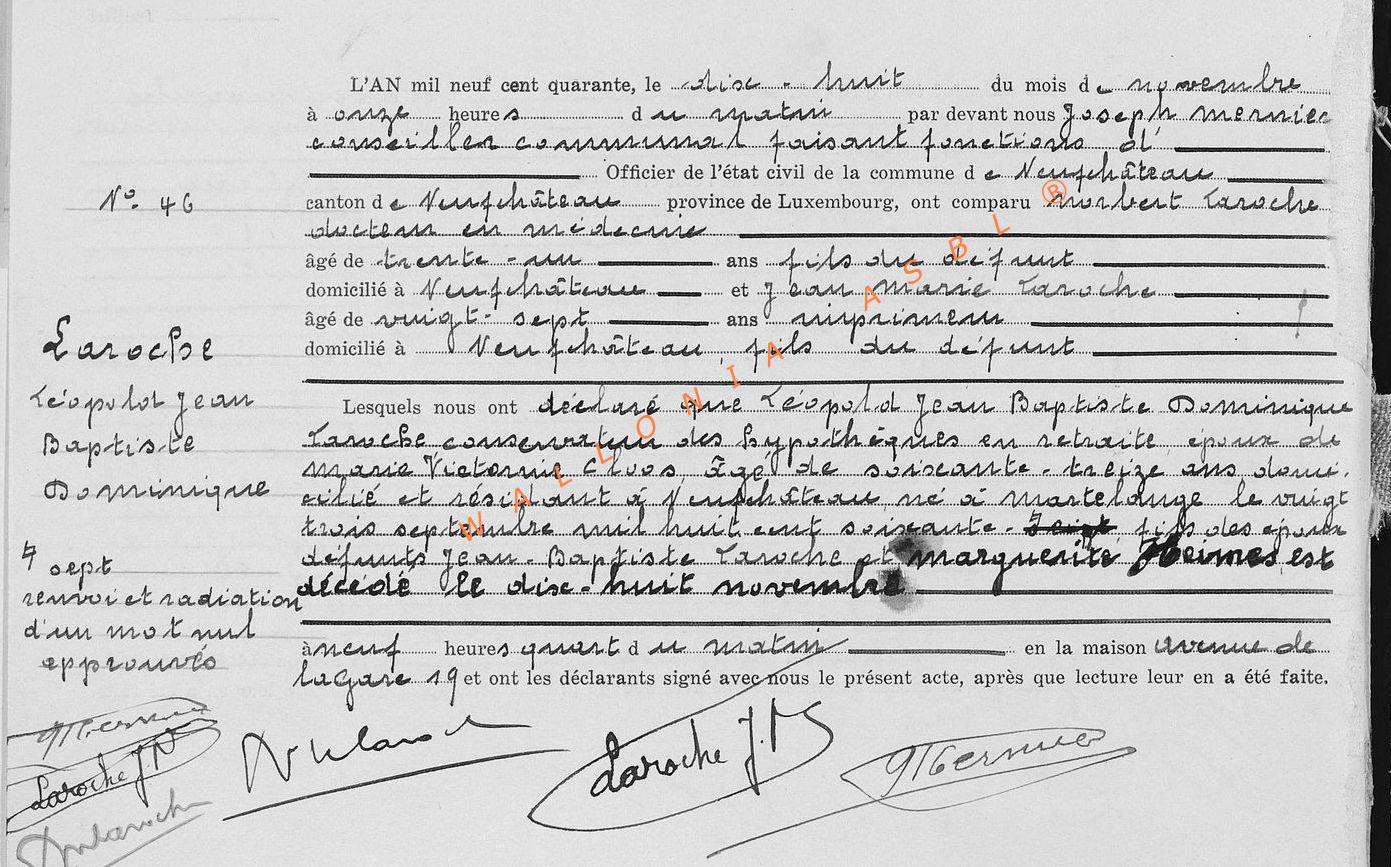 L'AN mil neuf cent quarante, le dix-huit du mois de novembre
à onze heures du matin par devant nous Joseph Mernier
conseiller communal faisant fonctions d'
Officier de l'état civil de la commune de Neufchâteau
N° 46
canton de Neufchâteau province de Luxembourg, ont comparu Norbert Laroche
docteur en médecine
âgé de trente-un ans fils du défunt
domicilié à Neufchâteau et Jean Marie Laroche
âgé de vingt-sept ans imprimeur
domicilié à Neufchâteau, fils du défunt
Laroche
Léopold Jean
Baptiste
Dominique
Lesquels nous ont déclaré que Léopold Jean Baptiste Dominique
Laroche conservateur des hypothèques en retraite, époux de
Marie Victorine Cloos, âgé de soixante-treize ans domi-
cilié et résidant à Neufchâteau, né à Martelange le vingt
trois septembre mil huit cent soixante- fils des époux
défunts Jean-Baptiste Laroche et Marguerite Heimes, est
décédé le dix-huit novembre
sept
renvoi et radiation
d'un mot nul
approuvés
à neuf heures quart du matin en la maison avenue de
la Gare 19 et ont les déclarants signé avec nous le présent acte, après que lecture leur en a été faite.
JMernier
Laroche J.M
Laroche J.M
JMernier
WALLONIA ASBL ®